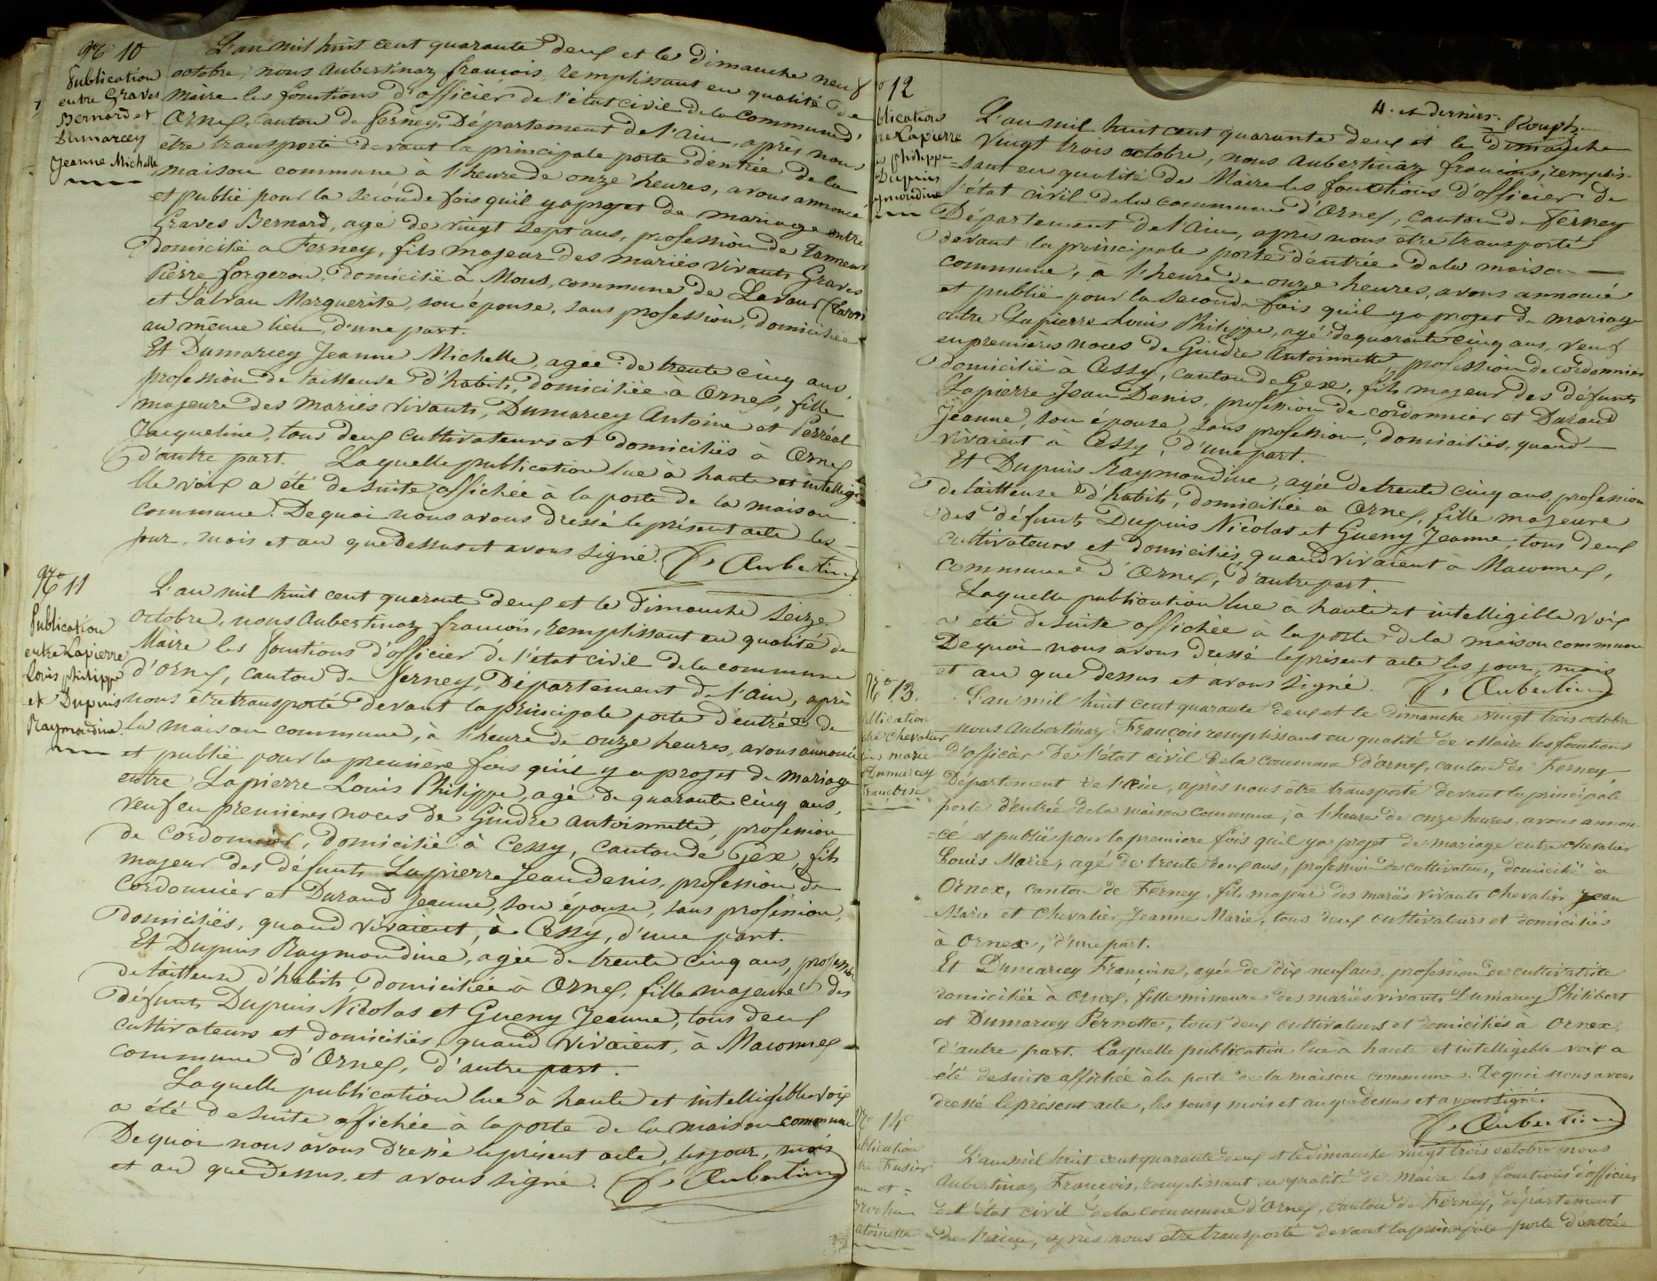 No 10
Publication
entre Graves
Bernard et
Dumarcey
Jeanne Michelle
L'an mil huit cent quarante deux et le Dimanche neuf
octobre, nous Aubertinaz françois, remplissant en qualité de
Maire les fonctions d'officier de l'état civil de la commune d'
Ornex, canton de Ferney, Département de l'Ain, après nous
être transporté devant la principale porte d'entrée de la
maison commune à l'heure de onze heures, avons annoncé
et publié pour la seconde fois qu'il y a projet de mariage entre
Graves Bernard, agé de vingt sept ans, profession de tanneur
domicilié a Ferney, fils majeur des mariés vivants Graves
Pierre forgeron domicilié à Mons, commune de Lavaur (Tarn)
et Marguerite, son épouse, sans profession, domiciliée
au même lieu, d'une part.
Et Dumarcey Jeanne Michelle, agée de trente cinq ans,
profession de tailleuse d'habits, domiciliée à Ornex, fille
majeure des mariés vivants, Dumarcey Antoine et Perréal
Jacqueline, tous deux cultivateurs et domiciliés à Ornex
d'autre part. Laquelle publication lue à haute et intelligi-
lle voix a été de suite affichée à la porte de la maison
commune. De quoi nous avons dressé le présent acte les
jour, mois et an que Dessus et avons signé. F. Aubertin
No 11
Publication
entre Lapierre
Louis philippe
et Dupuis
Raymondine.
L'an mil huit cent quarante deux et le Dimanche seize
octobre, nous Aubertinaz françois, remplissant en qualité de
Maire les fonctions d'officier de l'état civil de la commune
d'Ornex, canton de Ferney, Département de l'Ain, après
nous être transporté devant la principale porte d'entrée de
la maison commune, à l'heure de onze heures, avons annoncé
et publié pour la première fois qu'il y a projet de mariage
entre Lapierre Louis Philippe, agé de quarante cinq ans,
veuf en premières noces de Gindre Antoinette, profession
de cordonnier, domicilié à Cessy, canton de Gex, fils
majeur des défunts Lapierre Jean Denis, profession de
cordonnier et Durand Jeanne, son épouse, sans profession,
domiciliés, quand vivaient, à Cessy, d'une part.
Et Dupuis Raymondine, agée de trente cinq ans, profession
de tailleuse d'habits, domiciliée à Ornex, fille majeure des
défunts Dupuis Nicolas et Gueny Jeanne, tous deux
cultivateurs et domiciliés, quand vivaient, à Maconnex
commune d'Ornex, d'autre part.
Laquelle publication lue à haute et intelligible voix
a été de suite affichée à la porte de la maison commune
De quoi nous avons dressé le présent acte, les jour, mois
et an que Dessus, et avons signé. F. Aubertin
4. et dernier.
No 12
blication
Lapierre
philippe
Dupuis
ymondine
L'an mil huit cent quarante deux et le Dimanche
vingt trois octobre, nous Aubertinaz françois, remplis-
-sant en qualité de Maire les fonctions d'officier de
l'état civil de la commune d'Ornex, canton de Ferney
Département de l'Ain, après nous être transporté
devant la principale porte d'entrée de la maison
commune, à l'heure de onze heures, avons annoncé
et publié pour la seconde fois qu'il y a projet de mariage
entre Lapierre Louis Philippe, agé de quarante cinq ans, veuf
en premières noces de Gindre Antoinette, profession de cordonnier
domicilié à Cessy, canton de Gex, fils majeur des défunts
Lapierre Jean Denis, profession de cordonnier et Durand
Jeanne, son épouse, sans profession, domiciliés, quand
vivaient à Cessy, d'une part.
Et Dupuis Raymondine, agée de trente cinq ans, profession
de tailleuse d'habits, domiciliée à Ornex, fille majeure
des défunts Dupuis Nicolas et Gueny Jeanne, tous deux
cultivateurs et domiciliés, quand vivaient à Maconnex,
commune d'Ornex, d'autre part.
Laquelle publication lue à haute et intelligible voix
a été de suite affichée à la porte de la maison commune
De quoi nous avons dressé le présent acte les jour, mois
et an que dessus et avons signé. F. Aubertin
No 13.
blication
chevalier
marie
Dumarcey
françoise
L'an mil huit cent quarante deux et le dimanche vingt trois octobre
nous Aubertinaz François remplissant en qualité de Maire les fonctions
d'officier de l'état civil de la commune d'Ornex, canton de Ferney
Département de l'Ain, après nous être transporté devant la principale
porte d'entrée de la maison commune, à l'heure de onze heures, avons annon-
-cé et publié pour la première fois qu'il y a projet de mariage entre Chevalier
Louis Marie, agé de trente deux ans, profession de cultivateur, domicilié à
Ornex, canton de Ferney, fils majeur des mariés vivants Chevalier Jean
Marie et Chevalier Jeanne Marie, tous deux cultivateurs et domiciliés
à Ornex, d'une part.
Et Dumarcey Françoise, agée de dix neuf ans, profession de cultivatrice
domiciliée à Ornex, fille mineure des mariés vivants Dumarcey Philibert
et Dumarcey Pernette, tous deux cultivateurs et domiciliés à Ornex
d'autre part. Laquelle publication lue à haute et intelligible voix a
été de suite affichée à la porte de la maison commune. De quoi nous avons
dressé le présent acte, les jour, mois et an que dessus et avons signé.
F. Aubertin
No 14
blication
et
L'an mil huit cent quarante deux et le dimanche vingt trois octobre nous
Aubertinaz François, remplissant en qualité de Maire les fonctions d'officier
de l'état civil de la commune d'Ornex, canton de Ferney, département
de l'Ain, après nous être transporté devant la principale porte d'entrée